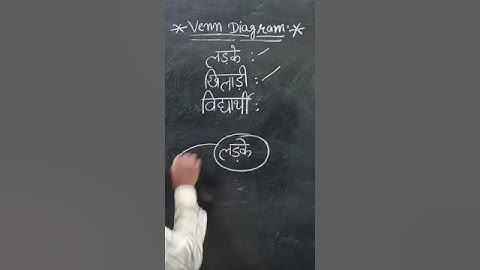 * Venn Diagram: *
लड़के :
खिलाड़ी :
विद्यार्थी :
लड़के